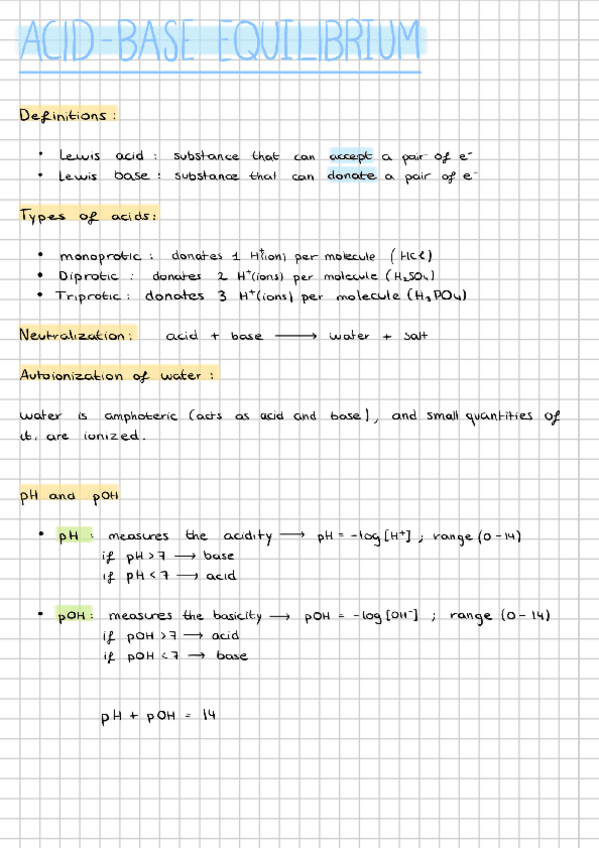 ACID-BASE EQUILIBRIUM
Definitions:
• Lewis acid : substance that can accept a pair of e⁻
• Lewis base : substance that can donate a pair of e⁻
Types of acids:
• monoprotic : donates 1 H⁺(ion) per molecule (HCl)
• Diprotic : donates 2 H⁺(ions) per molecule (H₂SO₄)
• Triprotic : donates 3 H⁺(ions) per molecule (H₃PO₄)
Neutralization: acid + base ⟶ water + salt
Autoionization of water :
water is amphoteric (acts as acid and base), and small quantities of
it are ionized.
pH and pOH
• pH : measures the acidity ⟶ pH = -log[H⁺] ; range (0-14)
if pH > 7 ⟶ base
if pH < 7 ⟶ acid
• pOH: measures the basicity ⟶ pOH = -log[OH⁻] ; range (0-14)
if pOH > 7 ⟶ acid
if pOH < 7 ⟶ base
pH + pOH = 14